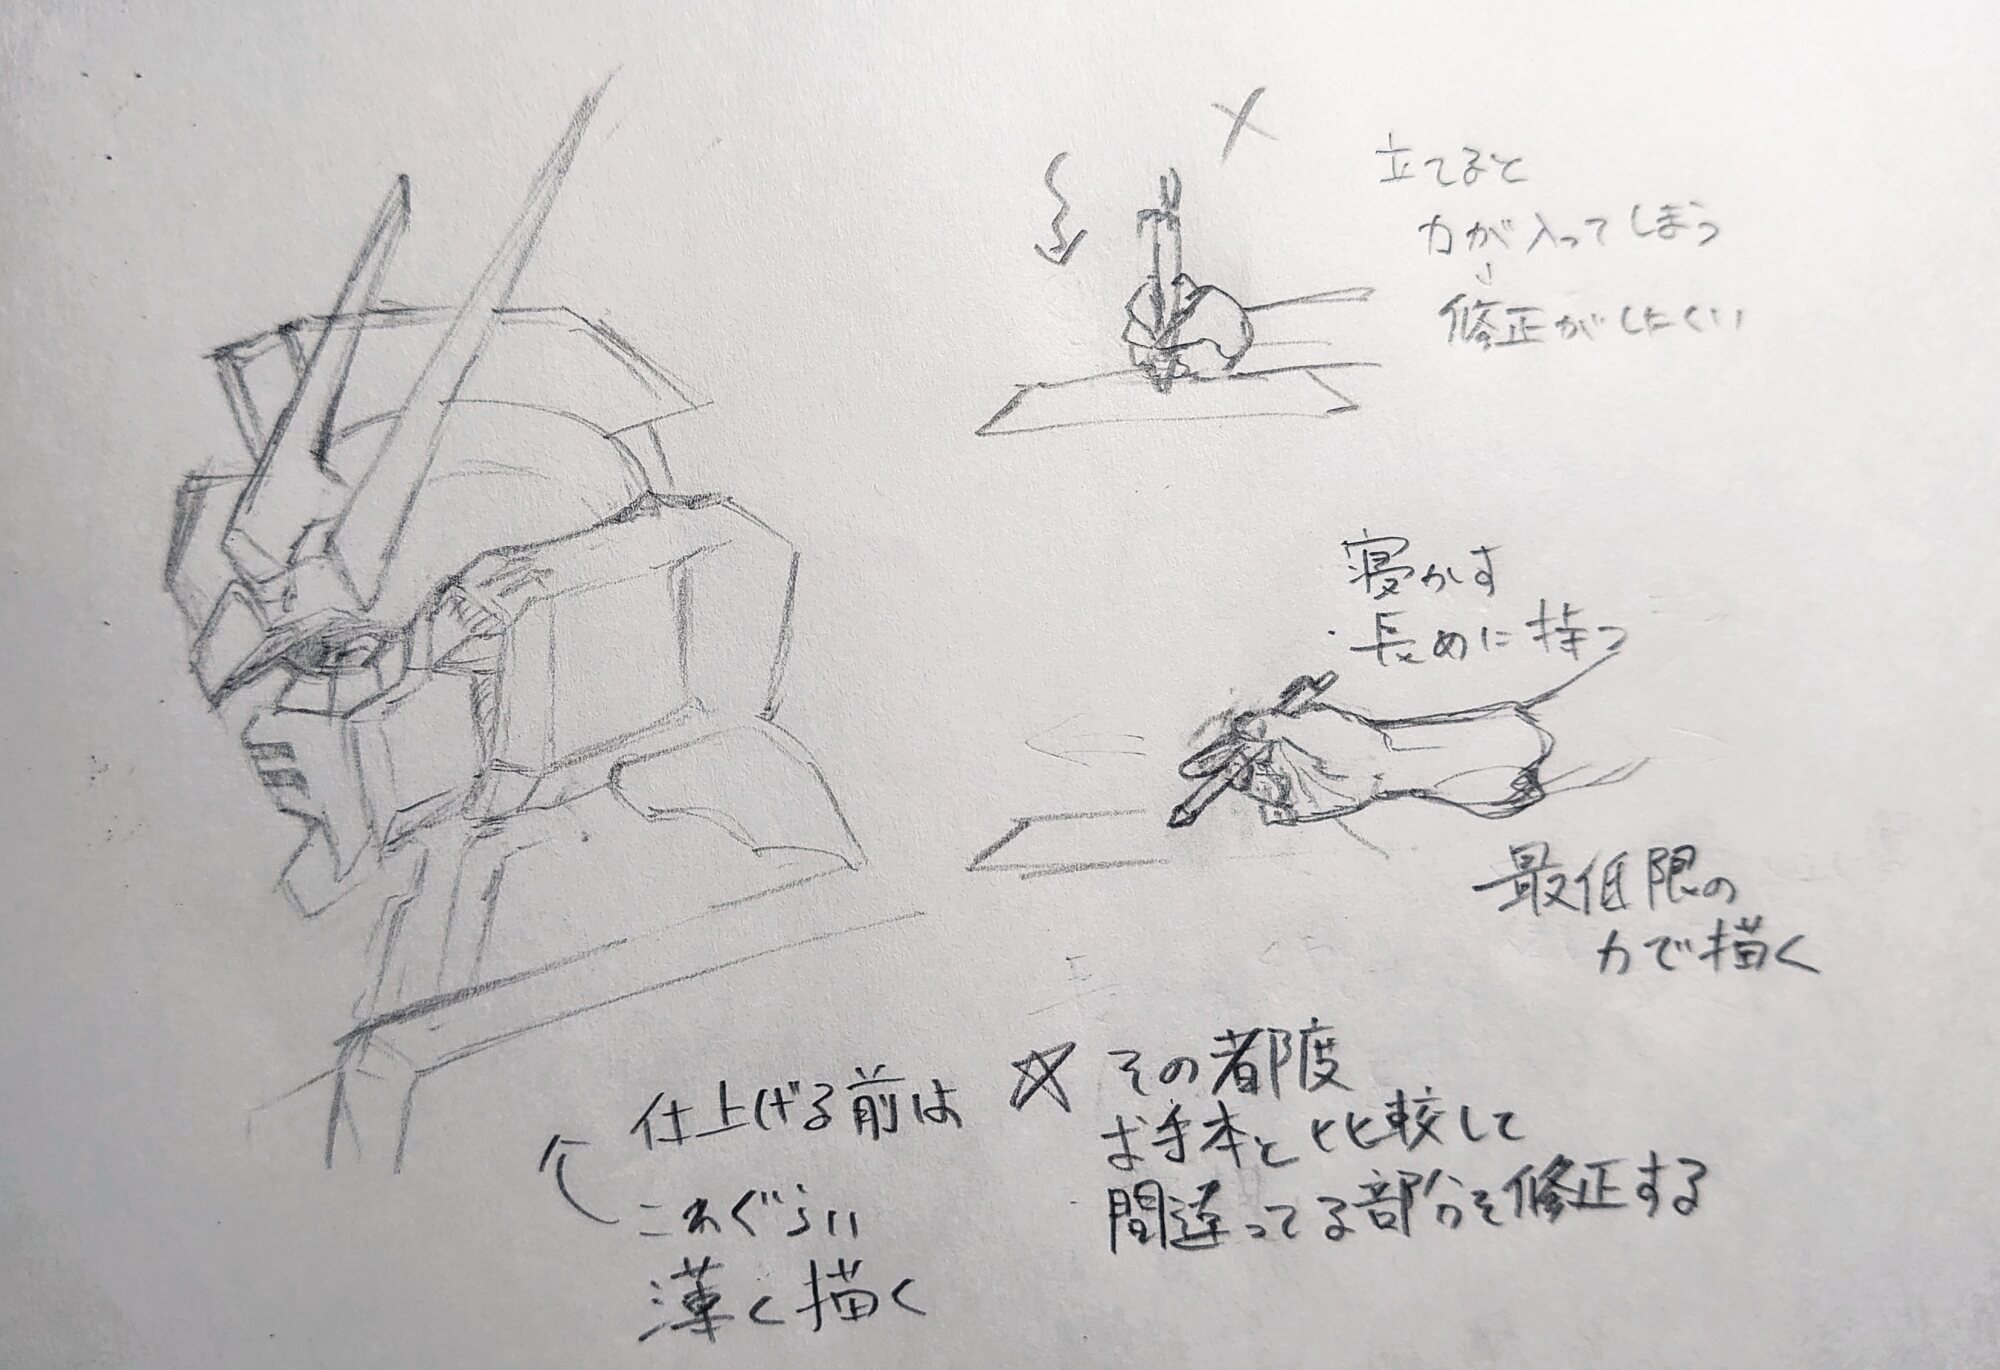 立てると
力が入ってしまう
↓
修正がしにくい
寝かす
・長めに持つ
最低限の
力で描く
仕上げる前は
これぐらい
薄く描く
☆その都度
お手本と比較して
間違ってる部分を修正する